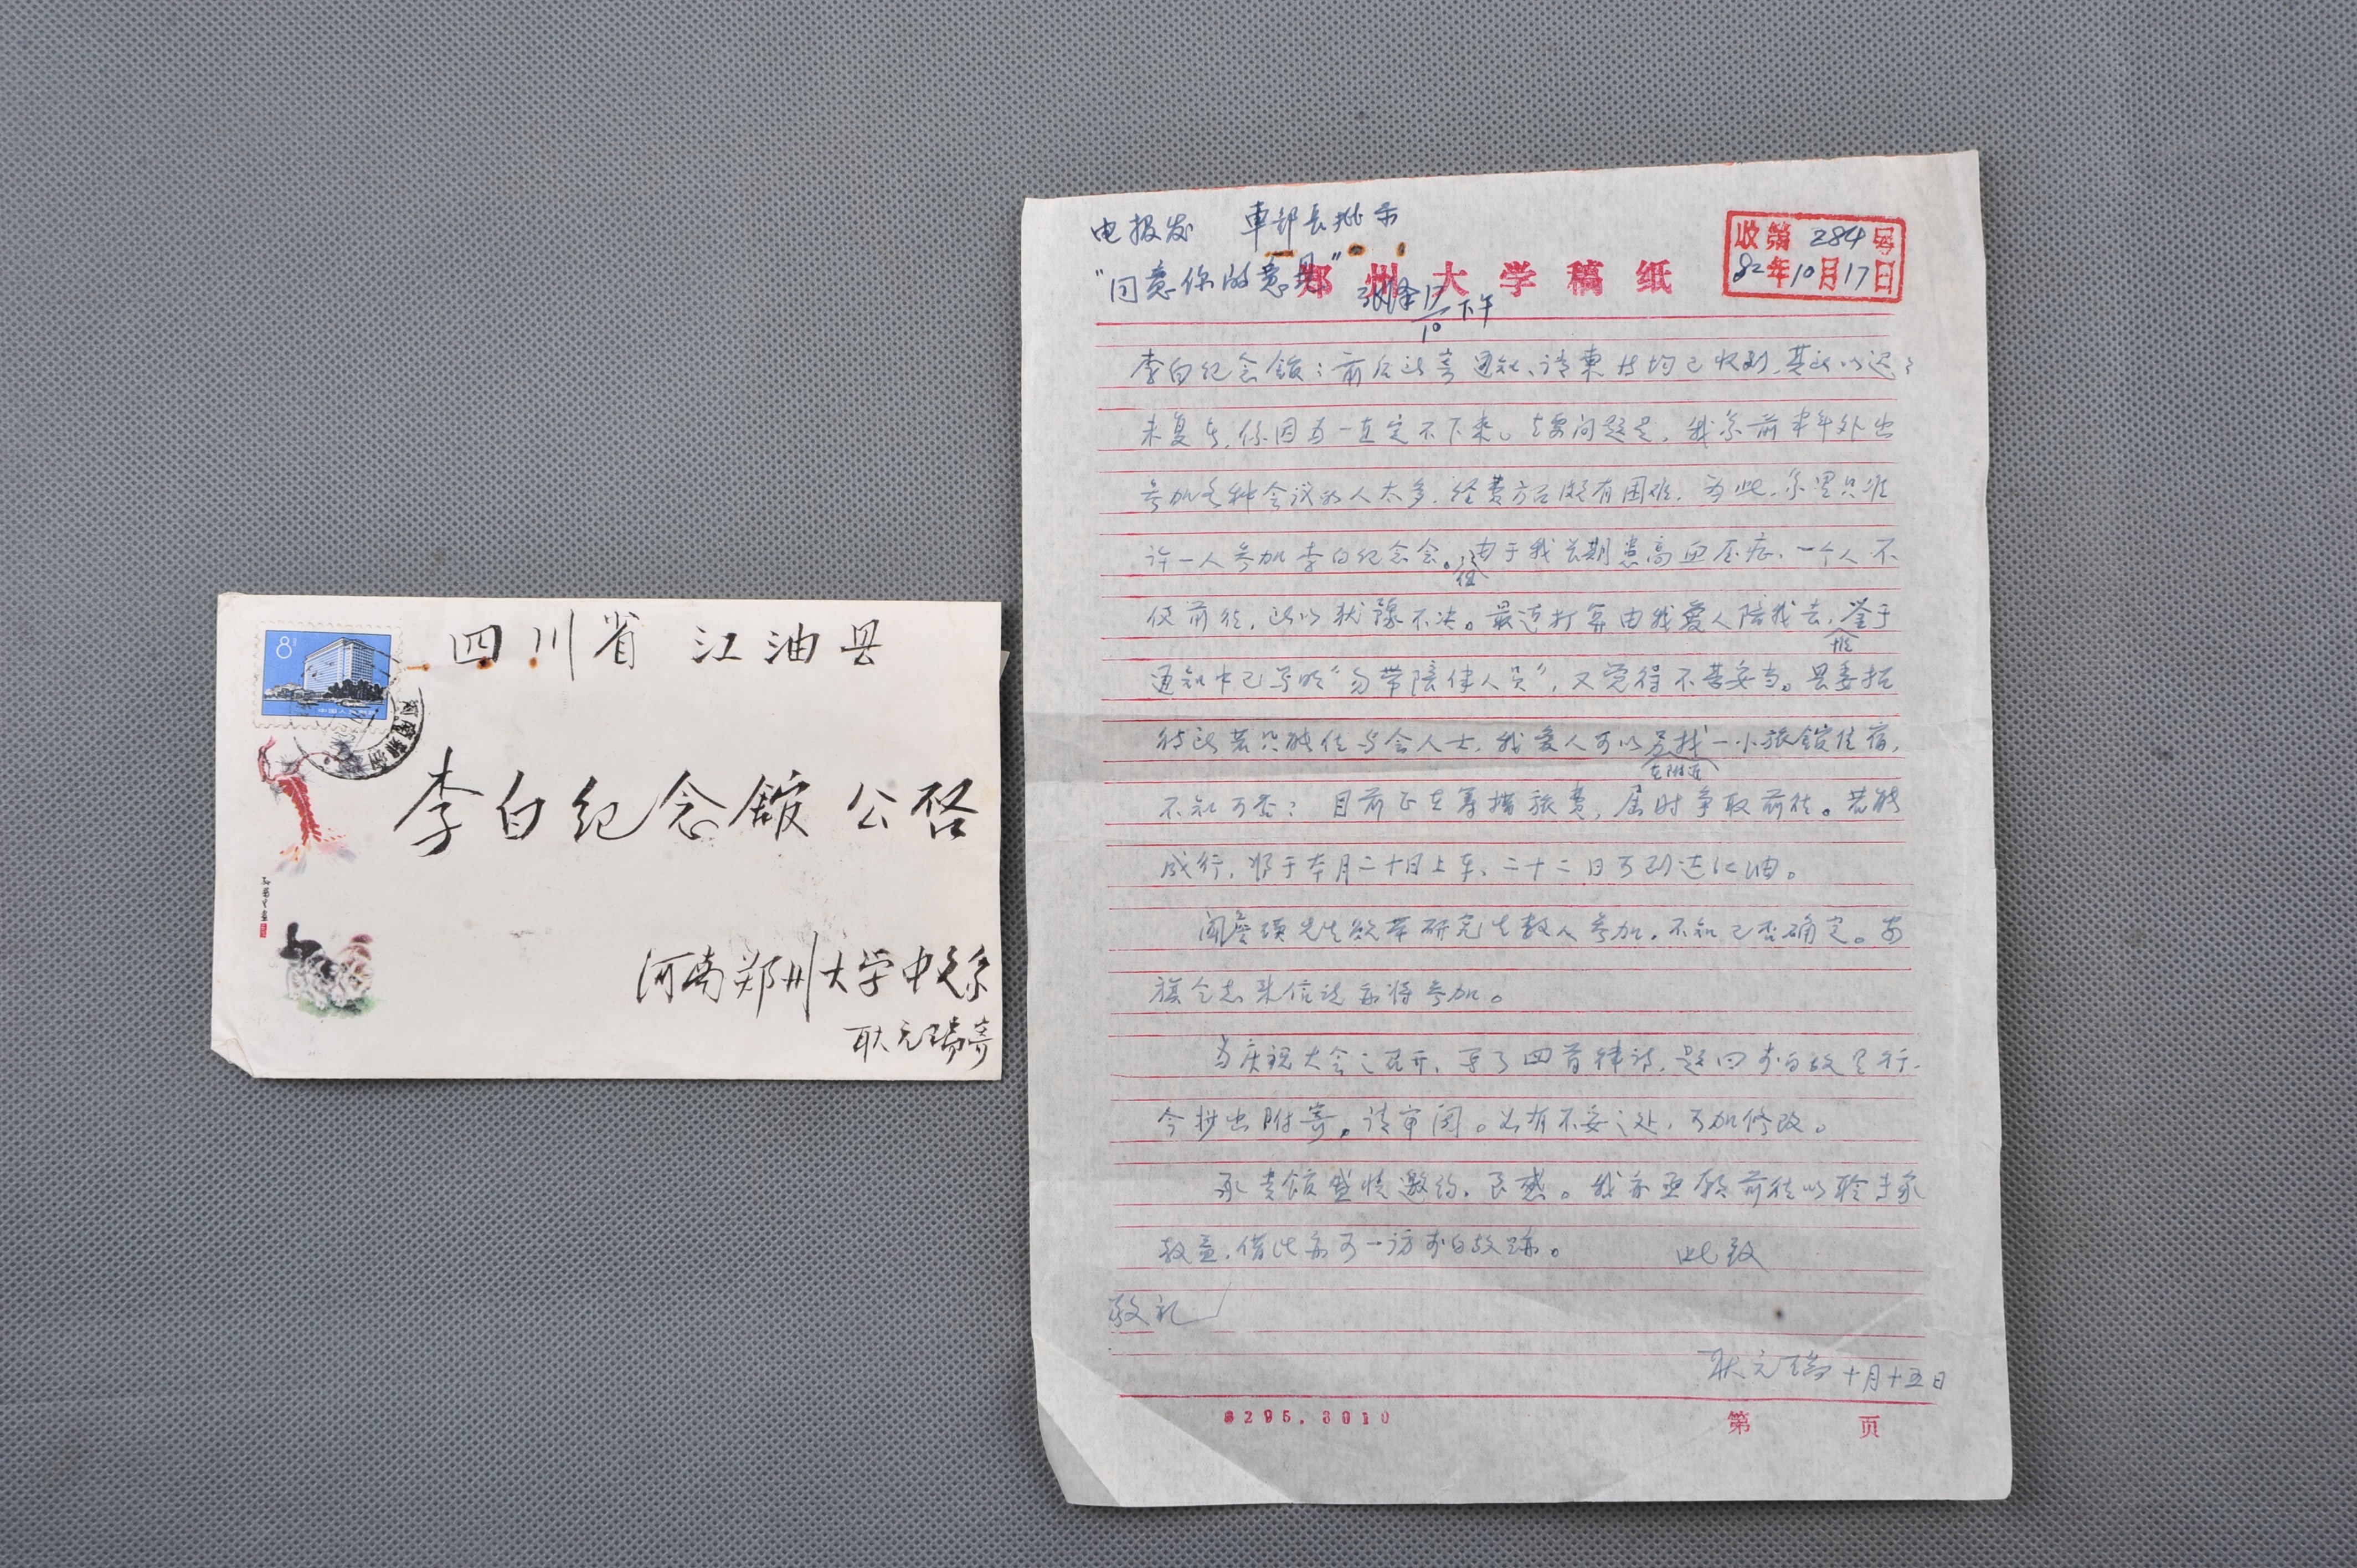 8分
中国人民邮政
四川省 江油县
李白纪念馆 公启
河南郑州大学中文系
耿元瑞寄
电报发 車部长批示
“同意你的意见”
17/10 下午
郑州大学稿纸
收第284号
82年10月17日
李白纪念馆:前后所寄通知、请柬等均已收到,其所以迟迟
未复者,係因为一直定不下来。主要问题是,我系前半年外出
参加各种会议的人太多,经费方面颇有困难,为此,系里只准
许一人参加李白纪念会。但由于我长期患高血压症,一个人不
便前往,所以犹豫不决。最近打算由我爱人陪我去,鉴于
通知中已写明“勿带陪伴人员”,又觉得不甚妥当。县委招
待所若只能住与会人士,我爱人可以在附近另找一小旅館住宿,
不知可否?目前正在筹措旅费,届时争取前往。若能
成行,将于本月二十日上车,二十二日可到达江油。
闻 先生欲带研究生数人参加,不知已否确定。安
旗同志来信说亦将参加。
为庆祝大会之召开,写了四首律诗,题曰李白故里行,
今抄出附寄,请审阅。如有不妥之处,可加修改。
承贵馆盛情邀约,至感。我亦亟愿前往以聆专家
教益,借此亦可一访李白故迹。 此致
敬礼
耿元瑞 十月十五日
8295.3010
第 页